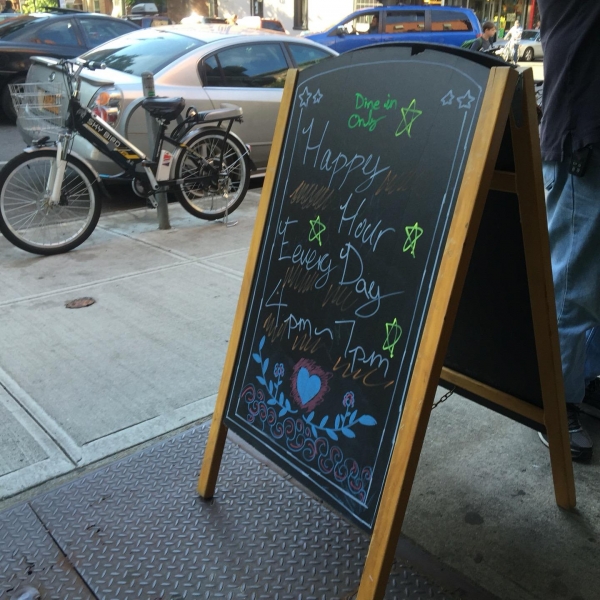 Dine in
Only
Happy
Hour
Eevery Day
4pm~7pm